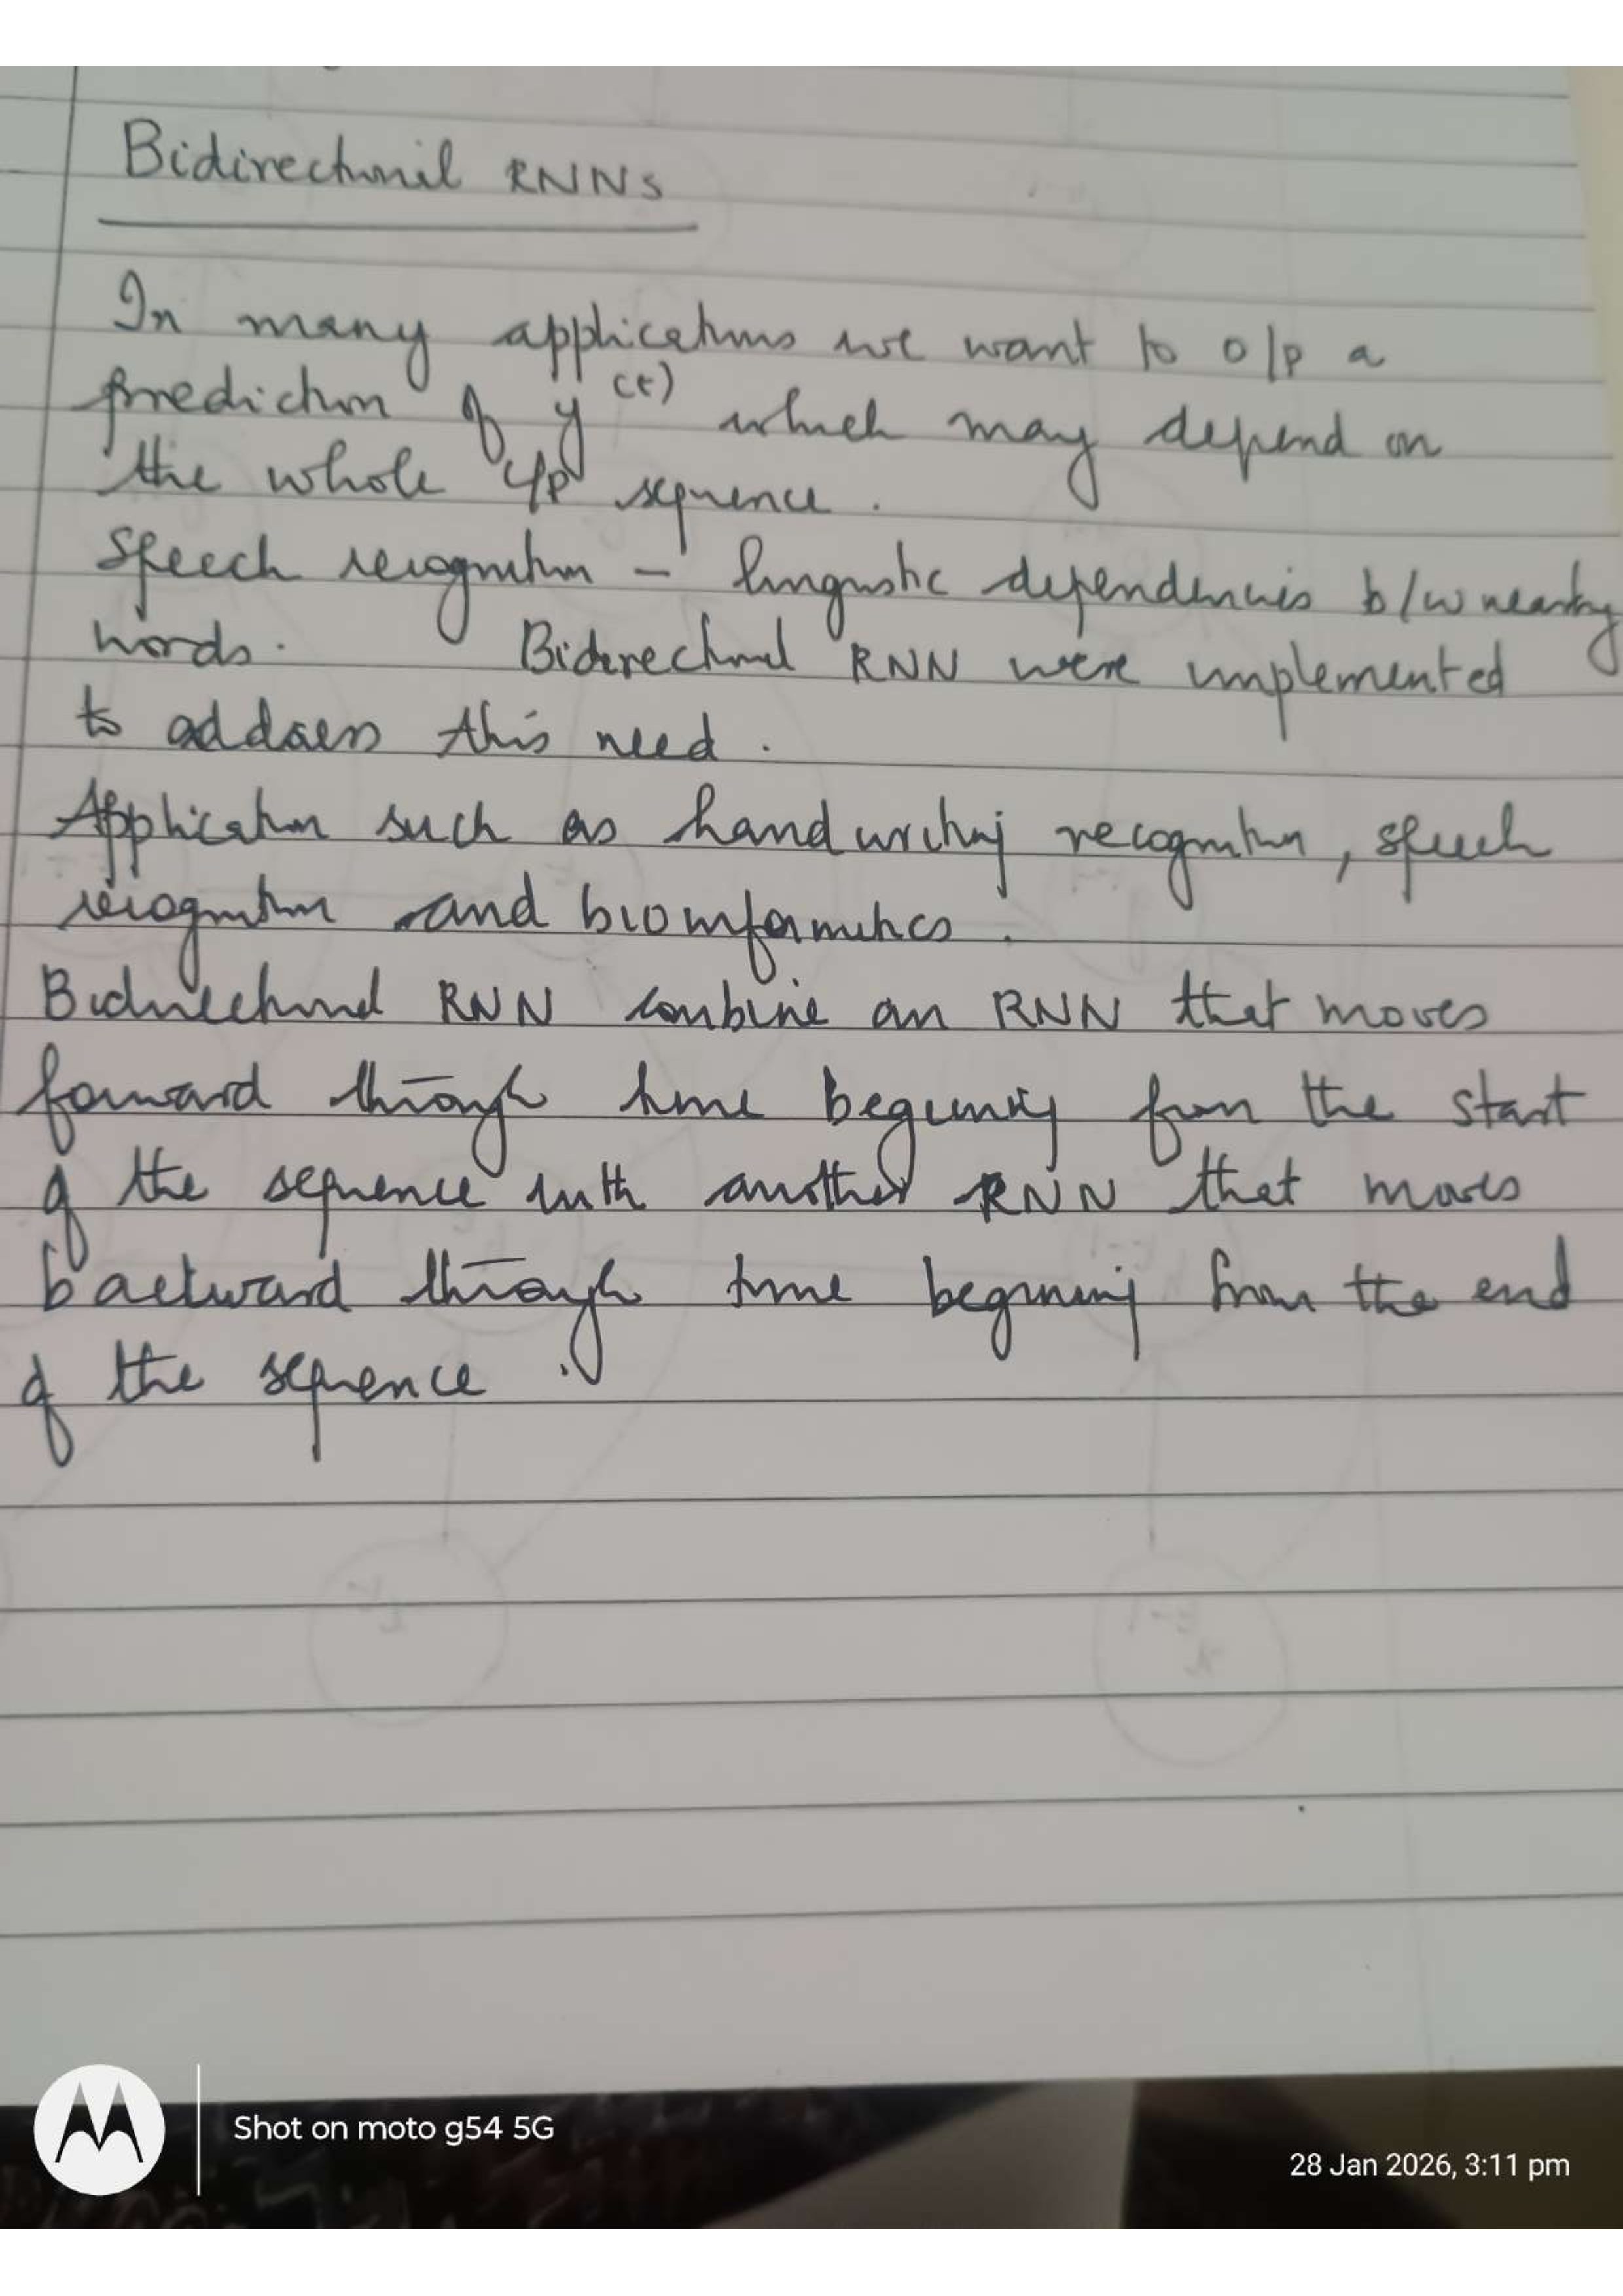 Bidirectional RNNs
In many applications we want to o/p a
prediction of y(t) which may depend on
the whole i/p sequence.
Speech recognition - linguistic dependencies b/w nearby
words. Bidirectional RNN were implemented
to address this need.
Application such as handwriting recognition, speech
recognition and bioinformatics.
Bidirectional RNN combine an RNN that moves
forward through time beginning from the start
of the sequence with another RNN that moves
backward through time beginning from the end
of the sequence.
Shot on moto g54 5G
28 Jan 2026, 3:11 pm